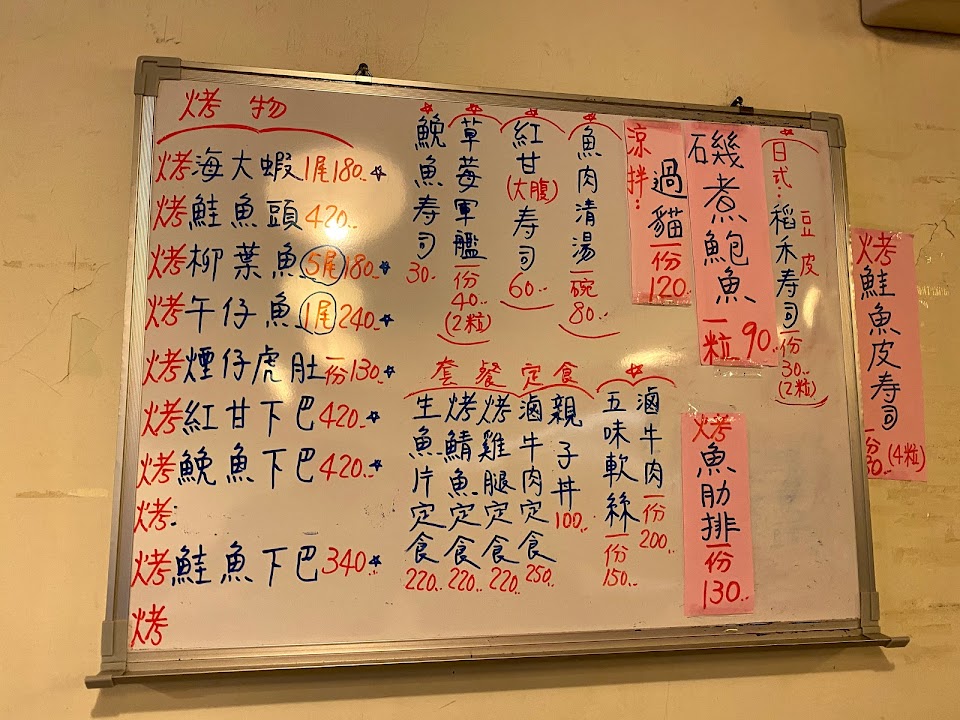 烤物
烤海大蝦1尾180..
烤鮭魚頭420..
烤柳葉魚5尾180..
烤午仔魚1尾240..
烤煙仔虎肚一份130..
烤紅甘下巴420..
烤鮸魚下巴420..
烤:
烤鮭魚下巴340..
烤
鮸魚寿司30..
草莓軍艦一份40..(2粒)
紅甘(大腹)寿司60..
魚肉清湯一碗80..
涼拌:過貓一份120..
磯煮鮑魚一粒90..
日式:豆皮稻禾寿司一份30..(2粒)
套餐定食
生魚片定食220..
烤鯖魚定食220..
烤雞腿定食220
滷牛肉定食250..
親子丼100..
五味軟絲一份150..
滷牛肉一份200..
烤魚肋排一份130..
烤鮭魚皮寿司一份(4粒)